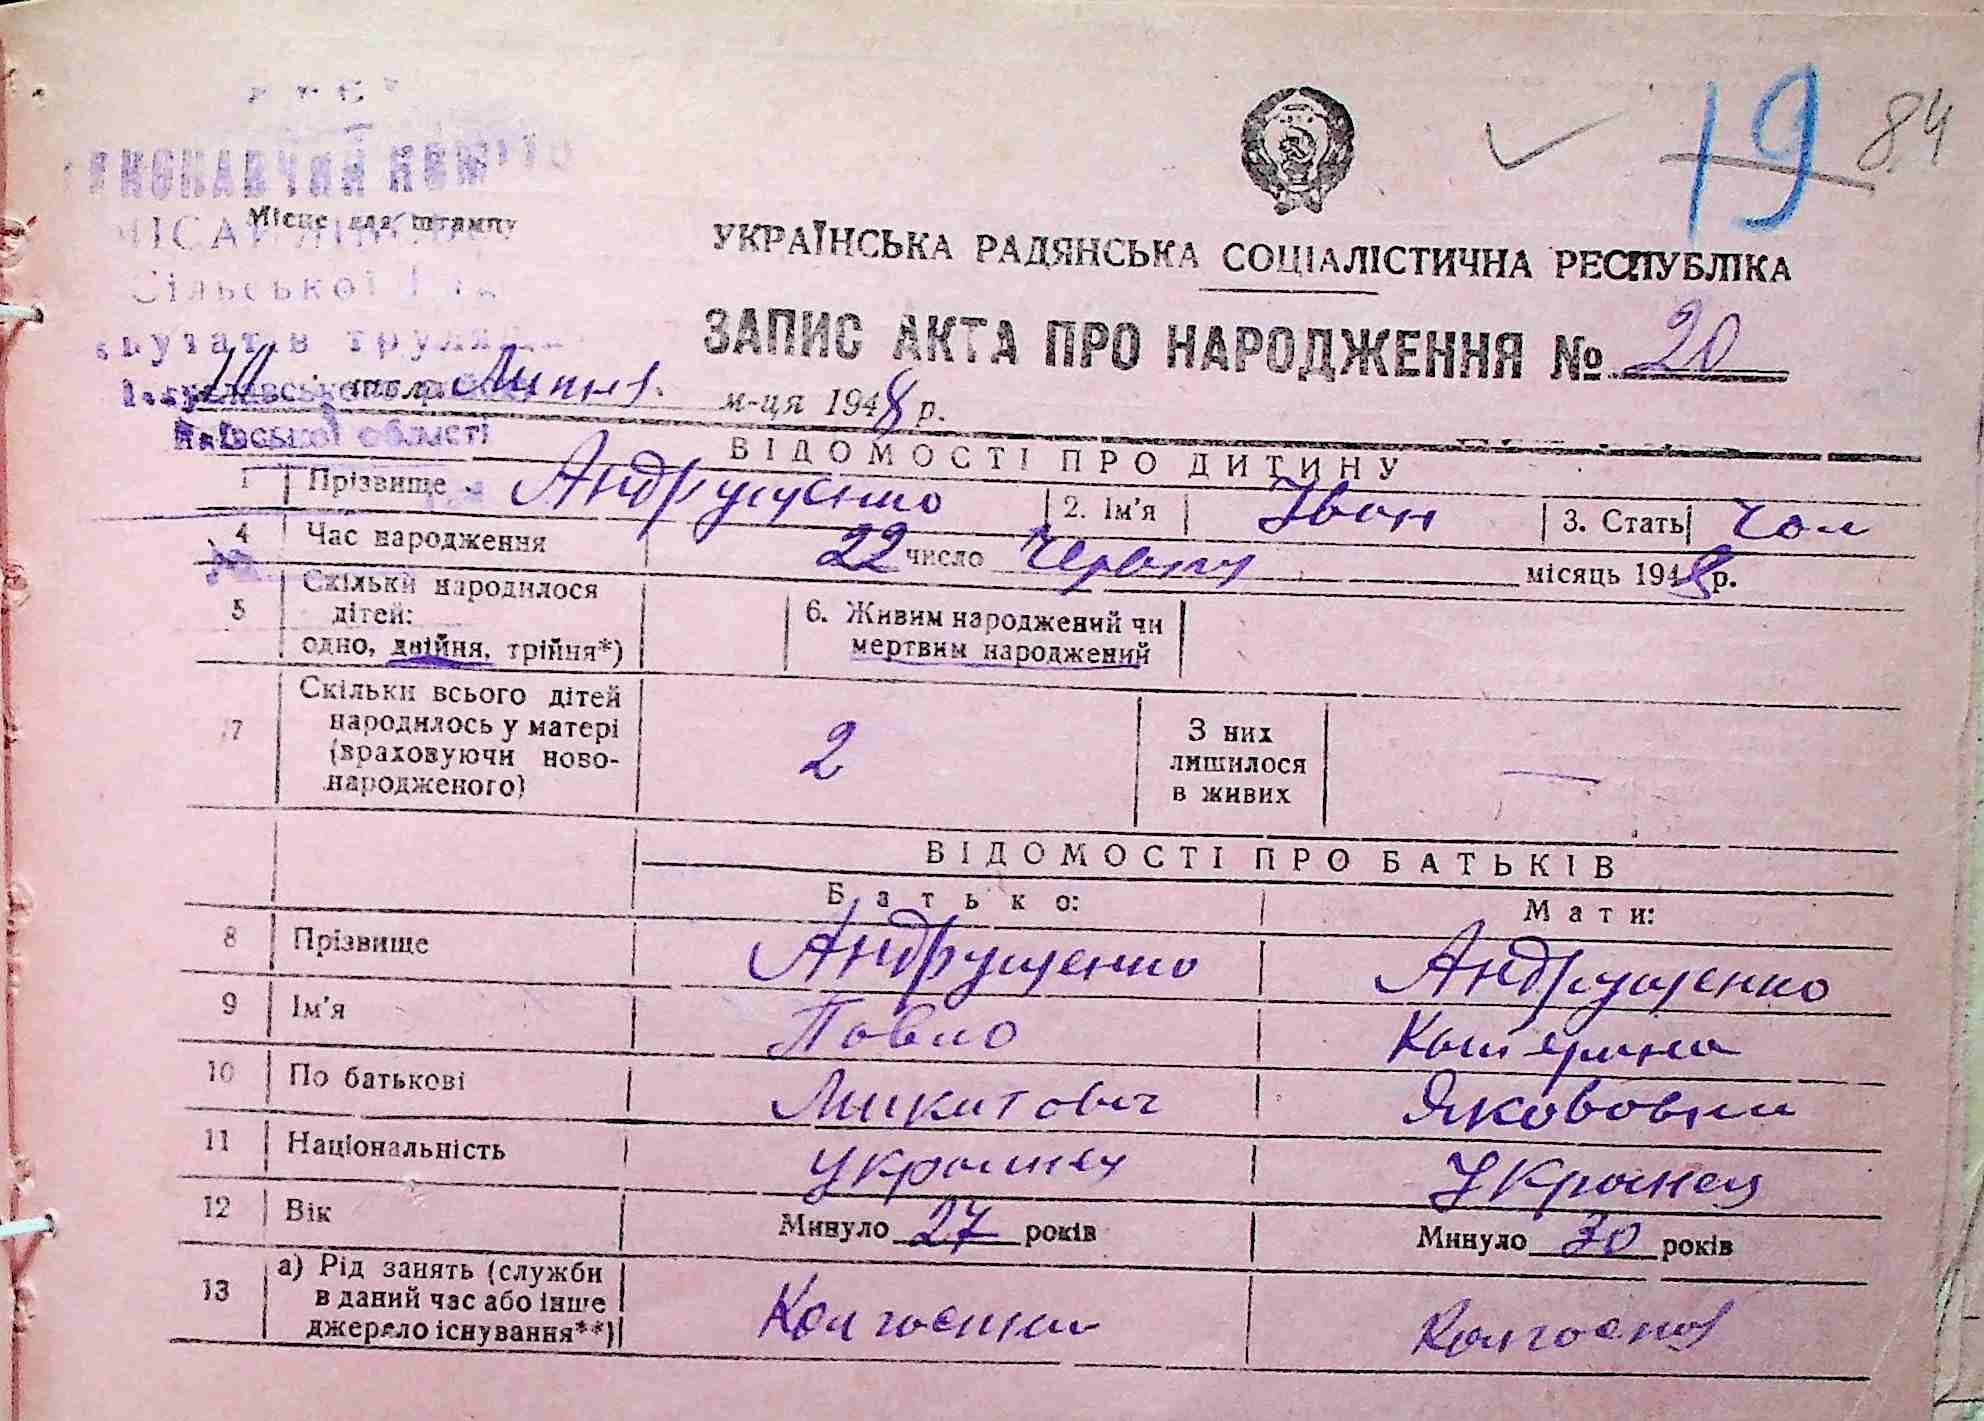 19 84
Місце для штампу
УКРАЇНСЬКА РАДЯНСЬКА СОЦІАЛІСТИЧНА РЕСПУБЛІКА
Сільської
ЗАПИС АКТА ПРО НАРОДЖЕННЯ № 20
10 Липня. м-ця 1948 р.
області
ВІДОМОСТІ ПРО ДИТИНУ
1 Прізвище Андрущенко 2. Ім'я Іван 3. Стать Чол
4 Час народження 22 число Червня місяць 1948 р.
5 Скільки народилося
дітей:
одно, двійня, трійня*)
6. Живим народжений чи
мертвим народжений
7 Скільки всього дітей
народилось у матері
(враховуючи ново-
народженого)
2
З них
лишилося
в живих
—
ВІДОМОСТІ ПРО БАТЬКІВ
Батько: Мати:
8 Прізвище Андрущенко Андрущенко
9 Ім'я Павло Катерина
10 По батькові Микитович Якововна
11 Національність Українец Українец
12 Вік Минуло 27 років Минуло 30 років
13 а) Рід занять (служби
в даний час або інше
джерело існування**)
Колгоспник Колгоспн